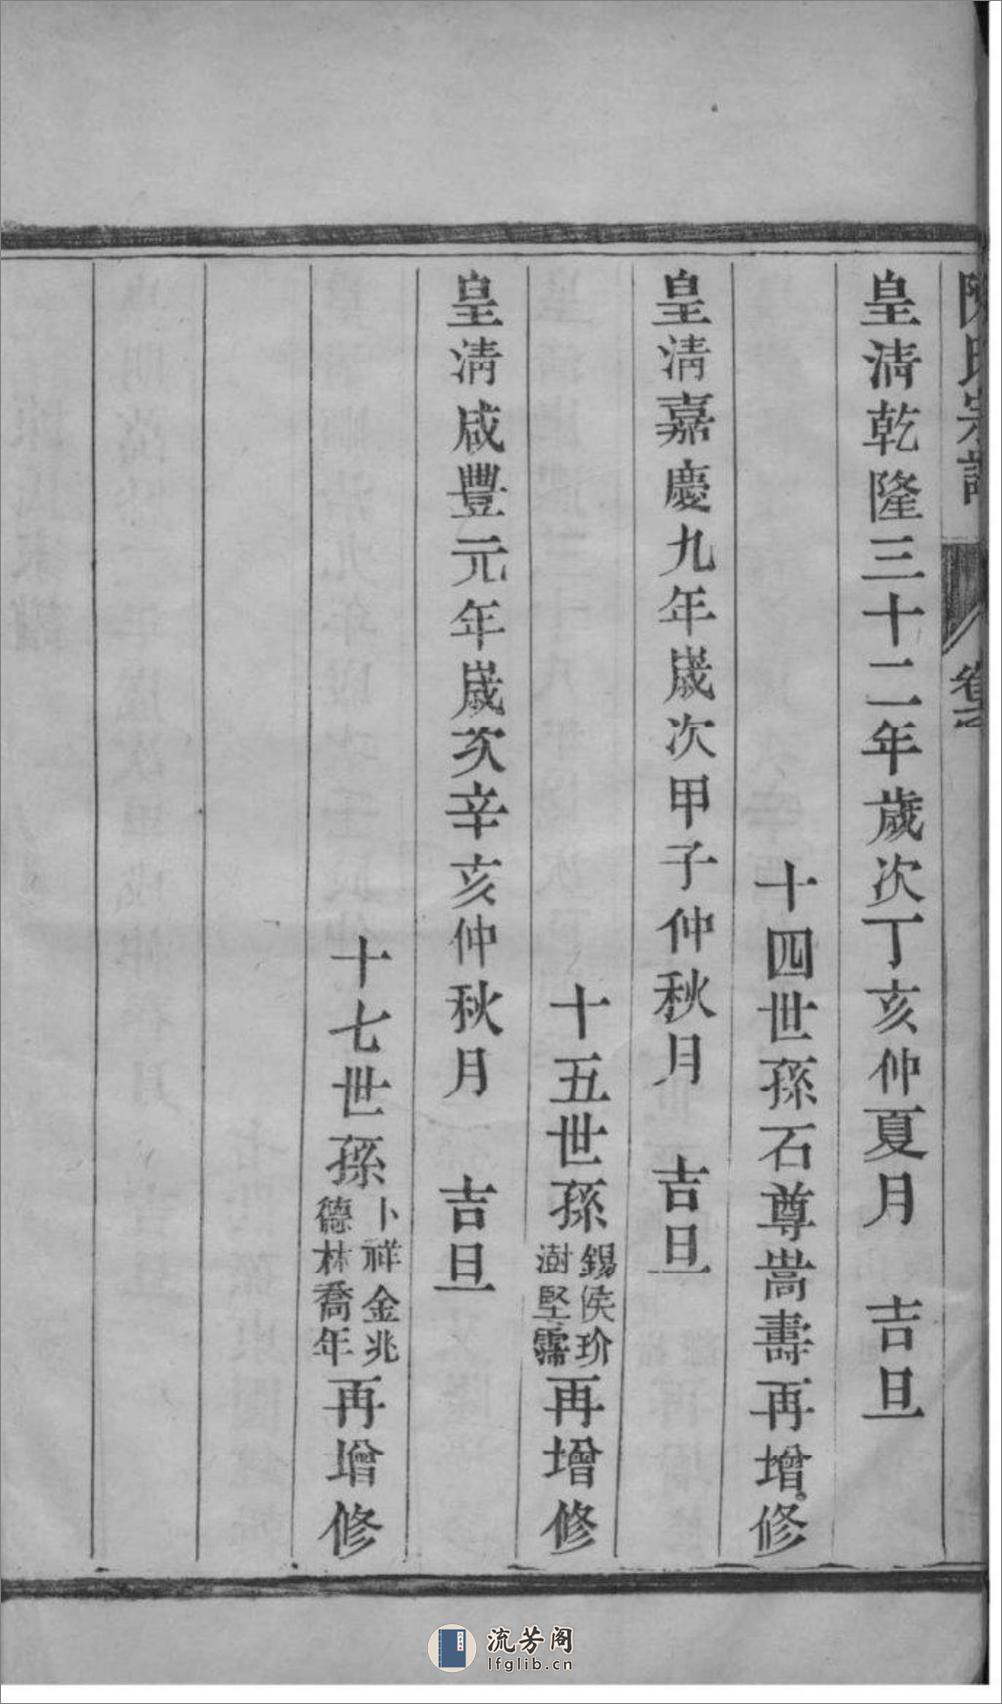 陳氏宗譜
卷之
皇清乾隆三十二年歲次丁亥仲夏月 吉旦
十四世孫石尊嵩壽再增修
皇清嘉慶九年歲次甲子仲秋月 吉旦
十五世孫錫侯玠澍堅霈再增修
皇清咸豐元年歲次辛亥仲秋月 吉旦
十七世孫卜祥金兆德林喬年再增修
流芳阁
lfglib.cn